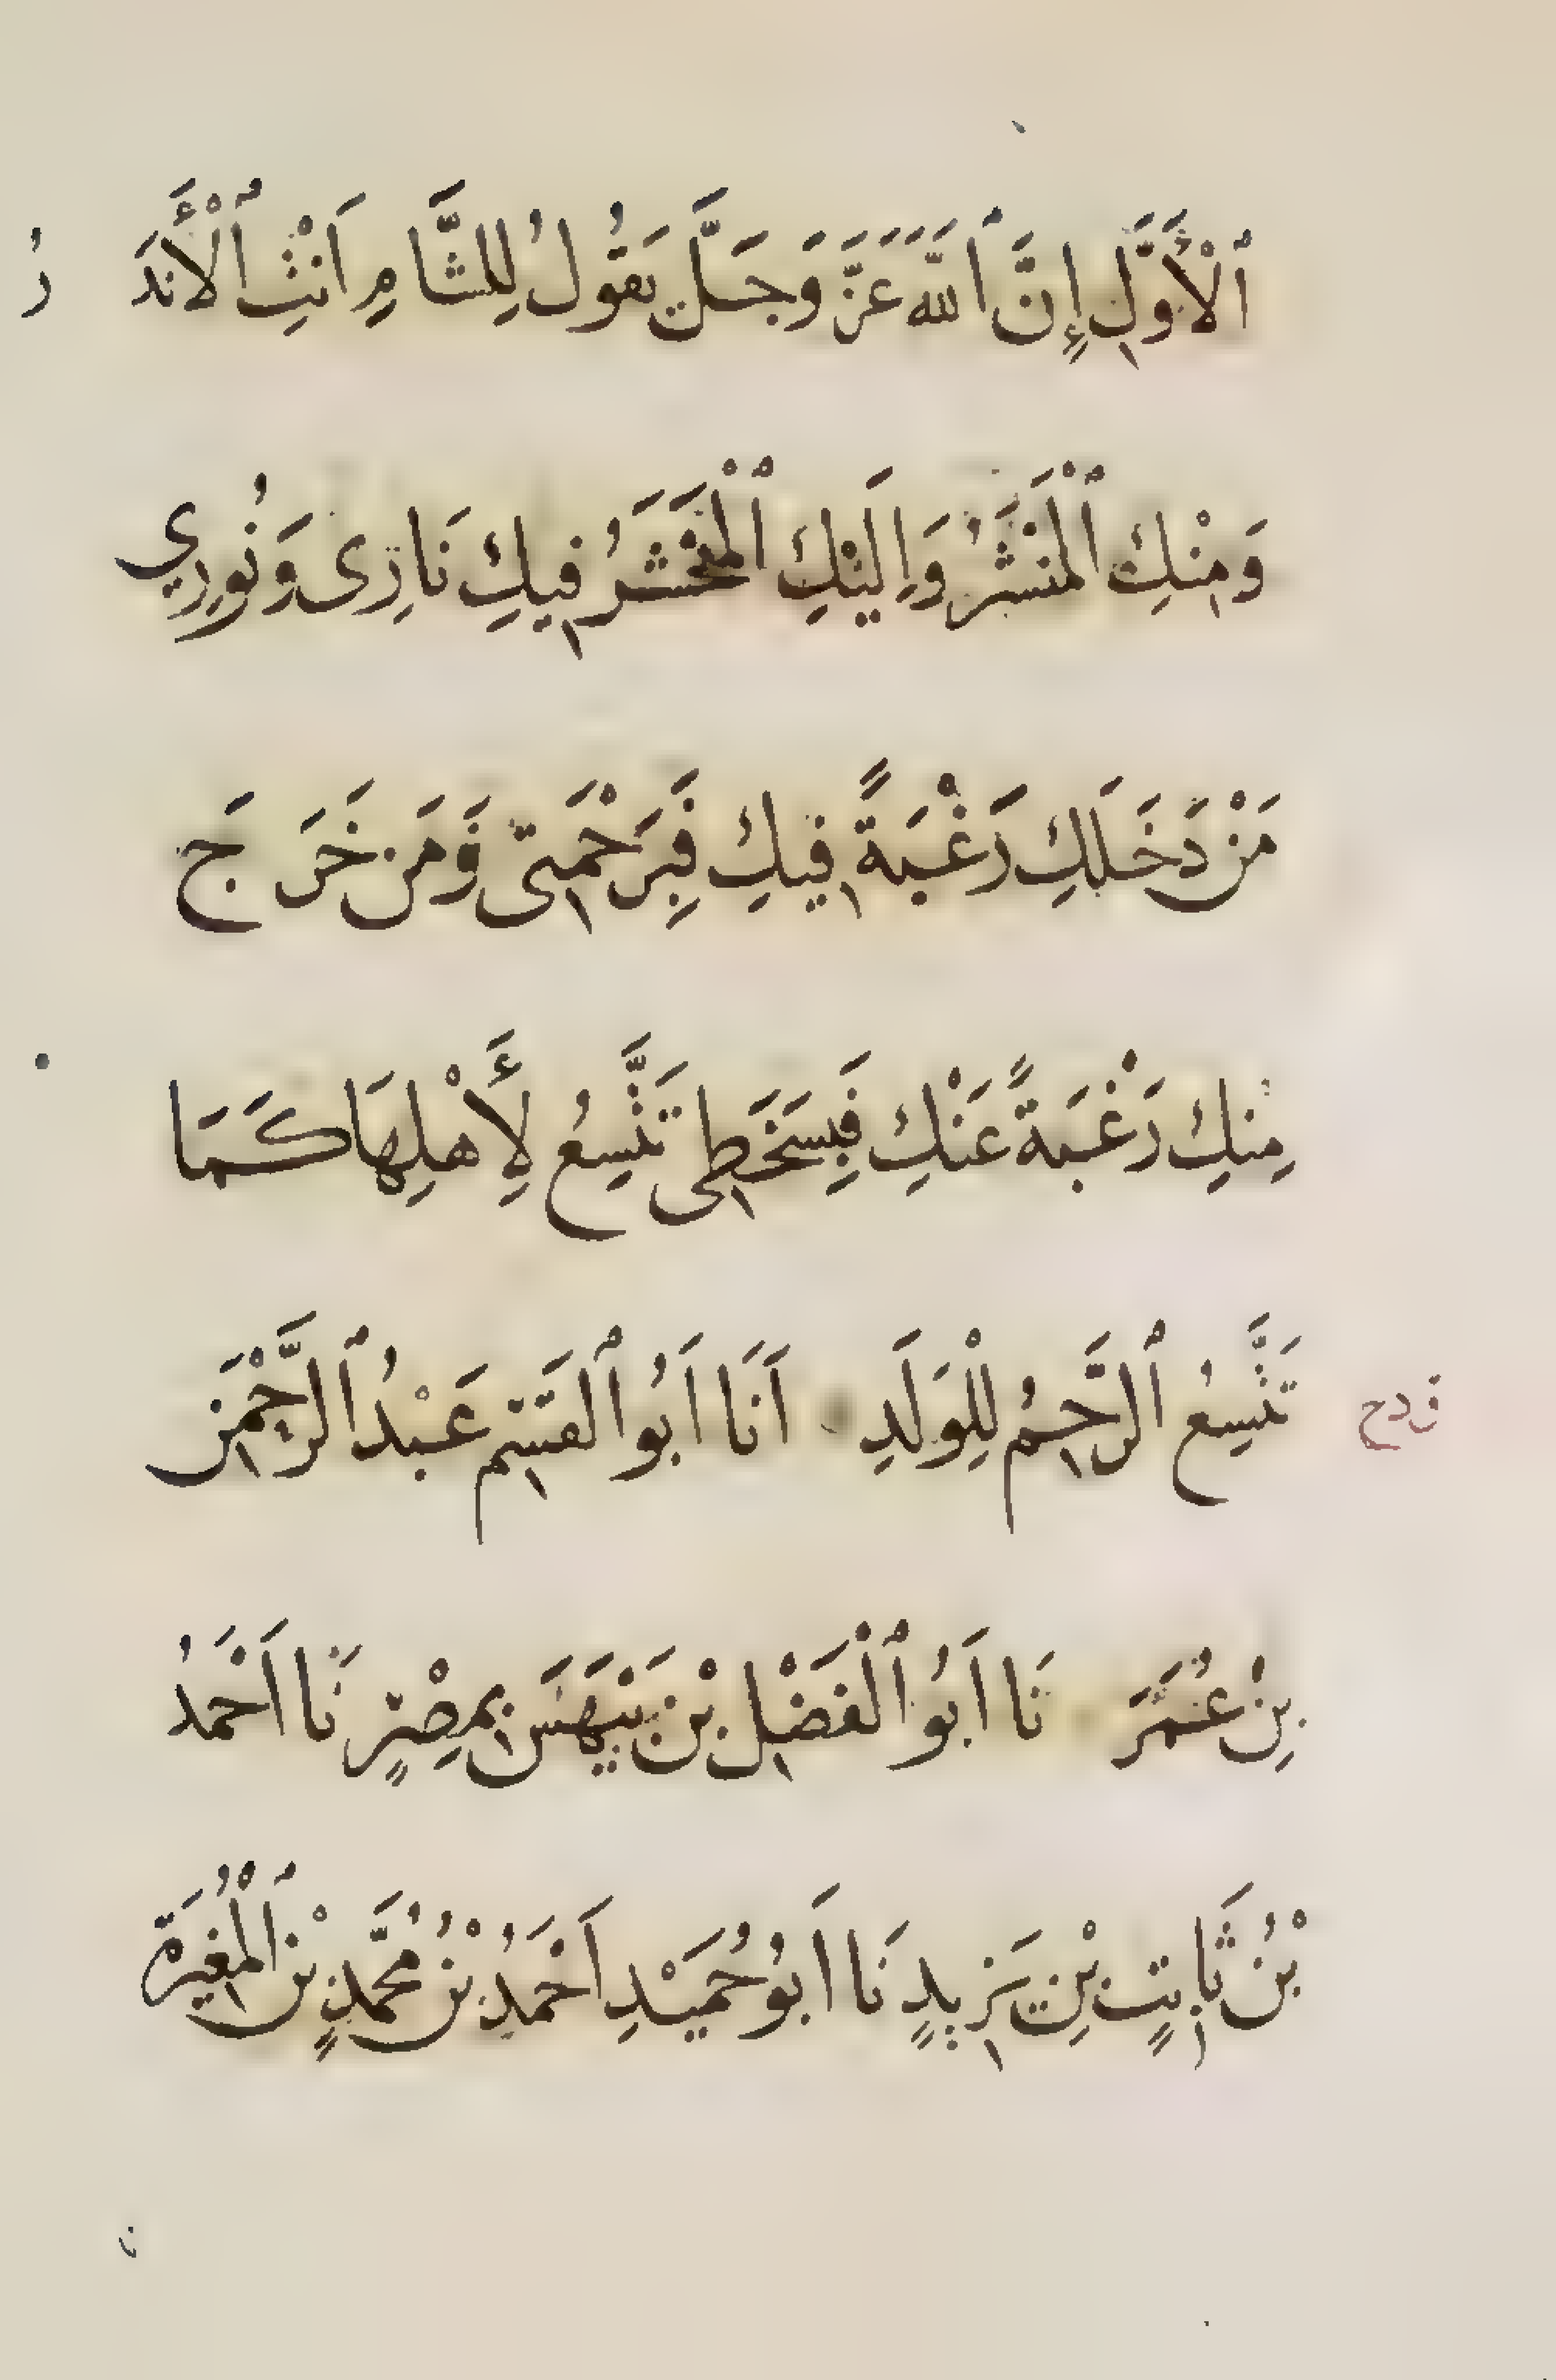 ٱلْأَوَّلِ إِنَّ ٱللَّهَ عَزَّ وَجَلَّ يَقُولُ لِلشَّامِ اَنْتِ ٱلْأَنْدَرُ
وَمِنْكِ ٱلْمَنْشَرُ وَاِلَيْكِ ٱلْمَحْشَرُ فِيكِ نَارِى وَنُورِي
مَنْ دَخَلَكِ رَغْبَةً فِيكِ فَبِرَحْمَتِى وَمَن خَرَجَ
مِنكِ رَغْبَةً عَنْكِ فَبِسَخَطِى تَتَّسِعُ لِأَهْلِهَا كَمَا
تَتَّسِعُ ٱلرَّحِمُ لِلْوَلَدِ اَنَا اَبُو ٱلقَسِم عَبْدُ ٱلرَّحْمَن
بْنِ عُمَرَ نَا اَبُو ٱلْفَضْل بْن بَيْهَس بِمِصْرٍ نَا اَحْمَدُ
بْنُ ثَابِتٍ بْنِ يَزِيدٍ نَا اَبُو حُمَيْدِ اَحْمَدُ بْنُ مُحَمَّدٍ بْن ٱلْمُغِيرَة